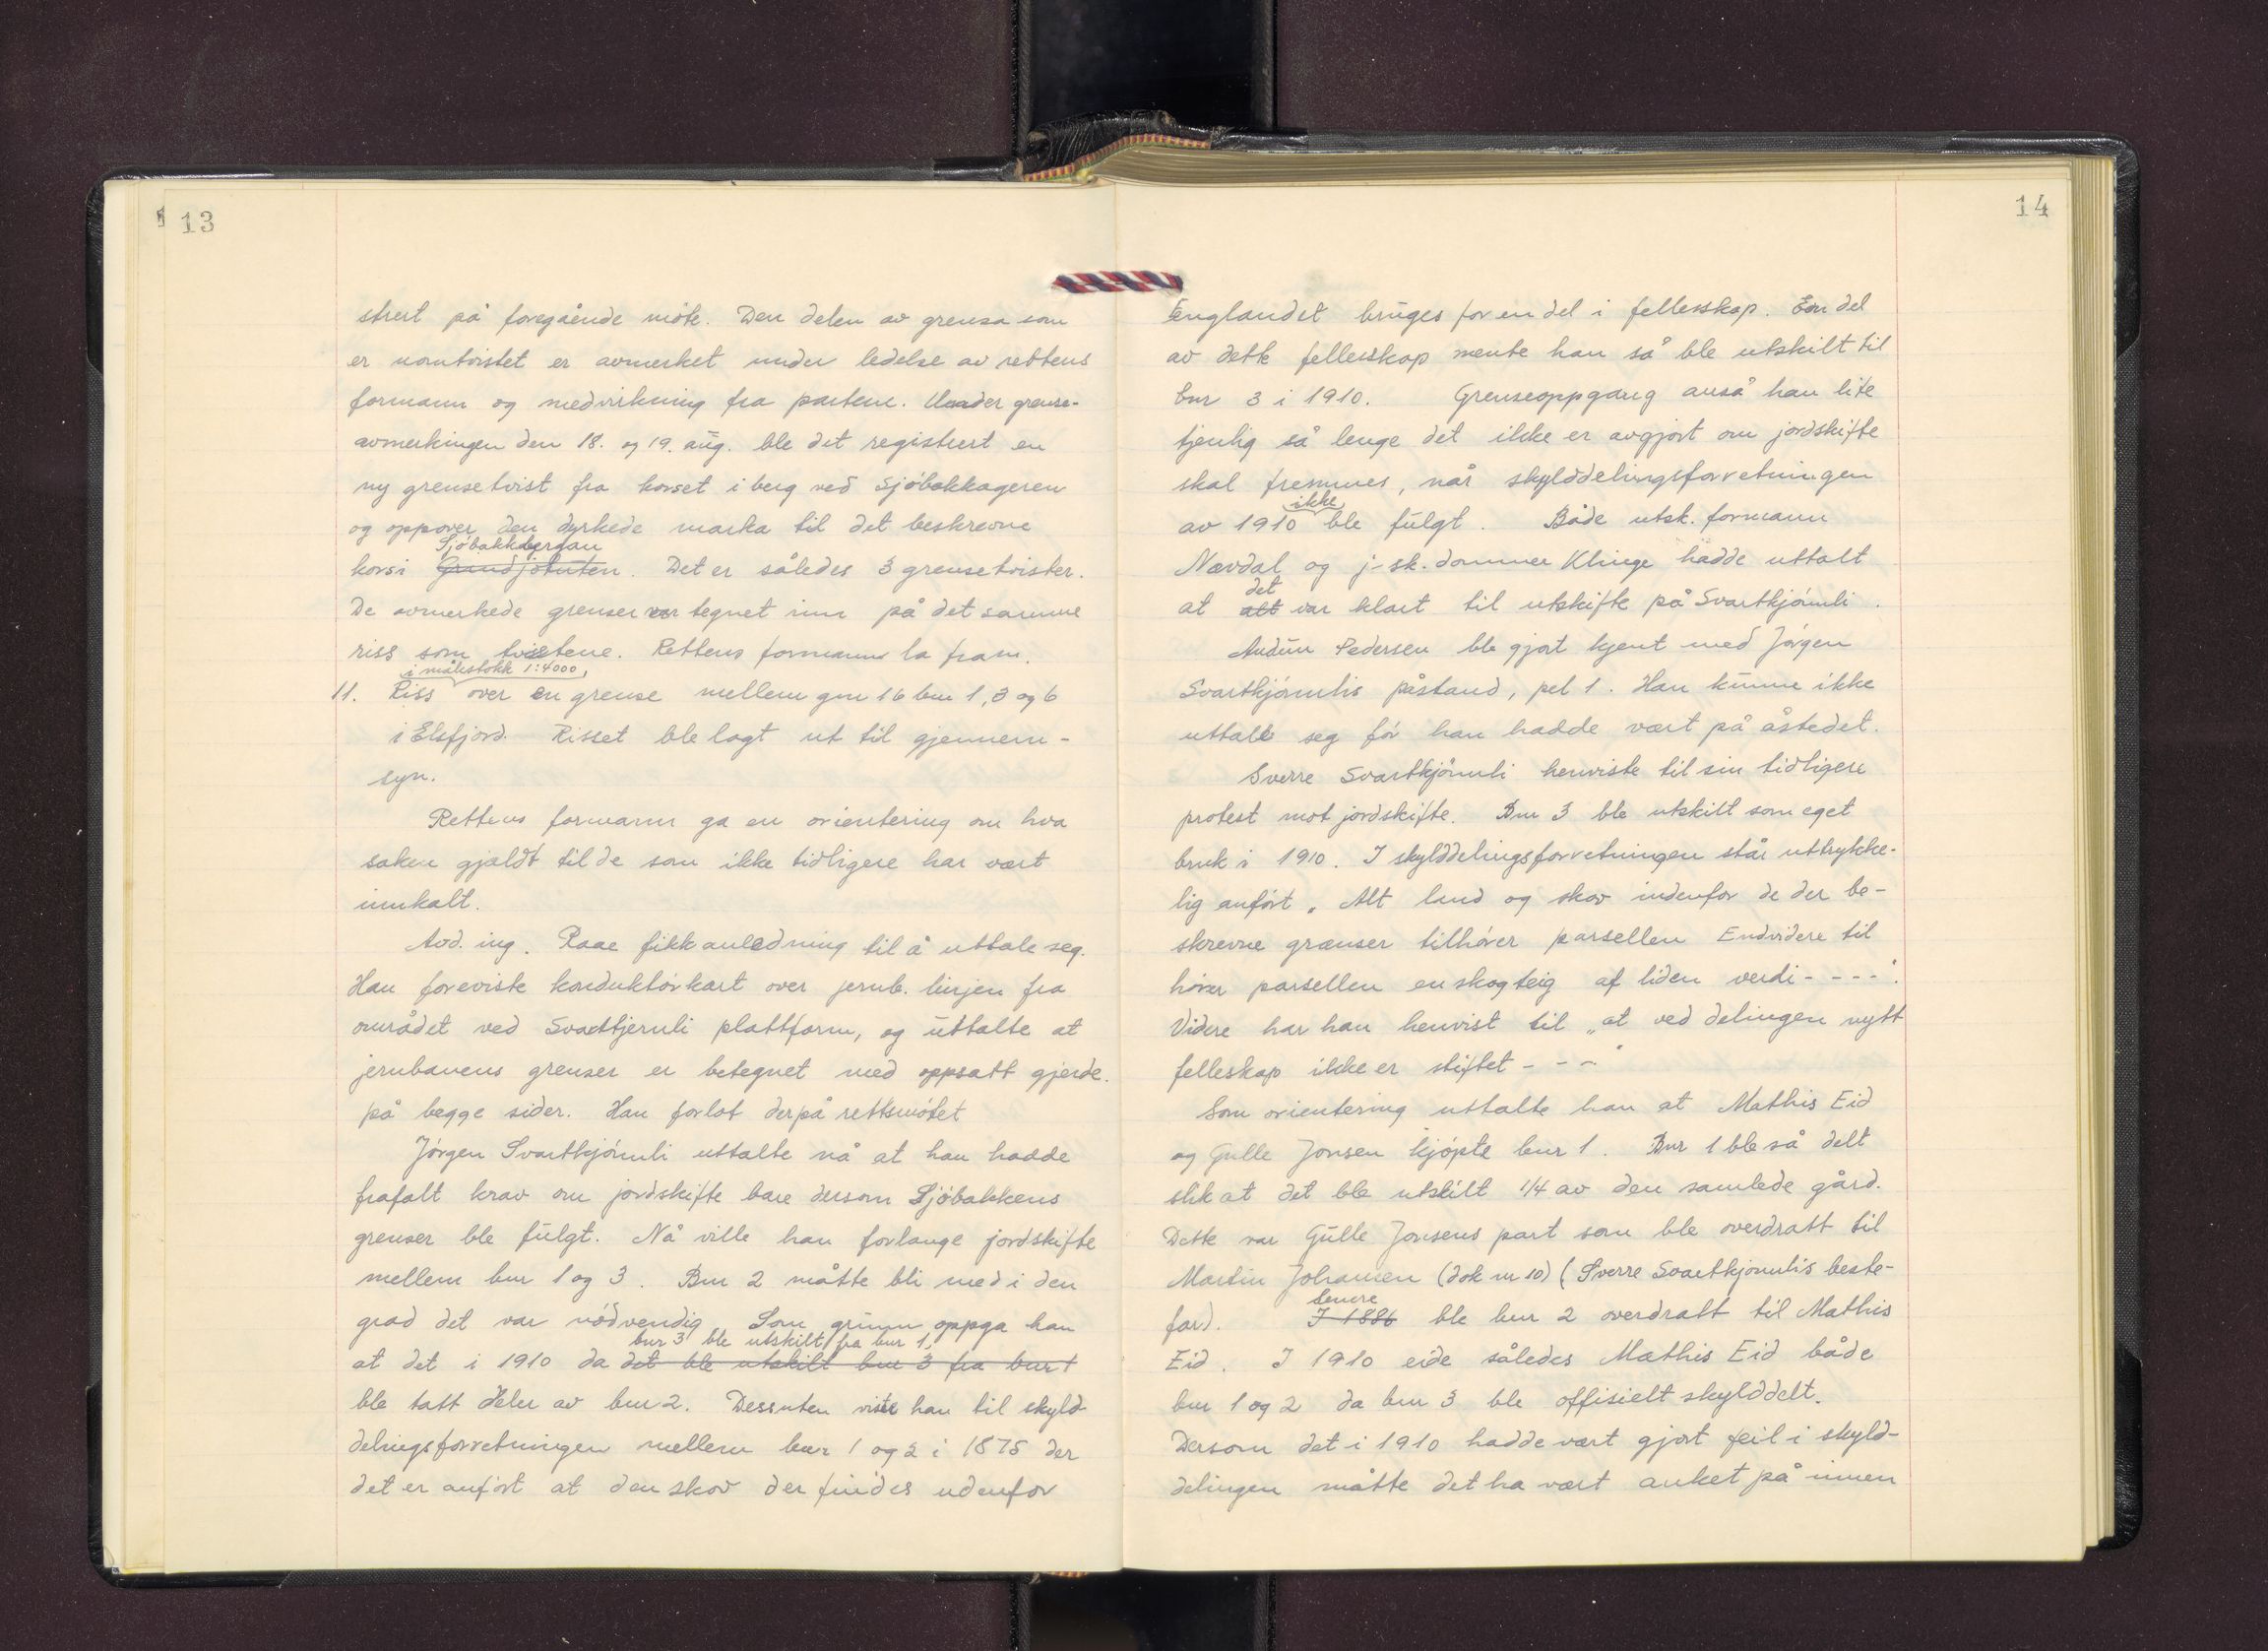 13
strert på foregående möte. Den delen av grensa som
er uomtvistet er avmerket under ledelse av rettens
formann og medvirkning fra partene. Under grense-
avmerkingen den 18. og 19. aug. ble det registrert en
ny grensetvist fra korset i berg ved Sjöbakkageren
og oppover den dyrkede marka til det beskrevne
Sjöbakkbergan
kors i Grundjötuten. Det er således 3 grensetvister.
De avmerkede grenser var tegnet inn på det samme
riss som tvistene. Rettens formann la fram.
i målestokk 1:4000,
11. Riss over en grense mellem gnr 16 bnr 1, 3 og 6
i Elsfjord. Risset ble lagt ut til gjennem-
syn.
Rettens formann ga en orientering om hva
saken gjaldt til de som ikke tidligere har vært
innkalt.
Avd. ing. Raae fikk anledning til å uttale seg.
Han foreviste konduktörkart over jernb. linjen fra
området ved Svarttjernli plattform, og uttalte at
jernbanens grenser er betegnet med oppsatt gjerde.
på begge sider. Han forlot derpå rettsmötet
Jörgen Svartkjönnli uttalte nå at han hadde
frafalt krav om jordskifte bare dersom Sjöbakkens
grenser ble fulgt. Nå ville han forlange jordskifte
mellem bnr 1 og 3. Bnr 2 måtte bli med i den
grad det var nödvendig. Som grunn oppga han
bnr 3 ble utskilt fra bnr 1,
at det i 1910 da det ble utskilt bnr 3 fra bnr 1
ble tatt deler av bnr 2. Dessuten viste han til skyld
delingsforretningen mellem bnr 1 og 2 i 1875 der
det er anfört at den skov der findes udenfor
14
Englandet bruges for en del i fellesskap. En del
av dette fellesskap mente han så ble utskilt til
bnr 3 i 1910. Grenseoppgang anså han lite
tjenlig så lenge det ikke er avgjort om jordskifte
skal fremmes, når skylddelingsforretningen
ikke
av 1910 ble fulgt. Både utsk. formann
Nævdal og j-sk. dommer Klinge hadde uttalt
det
at alt var klart til utskifte på Svartkjönnli.
Audun Pedersen ble gjort kjent med Jörgen
Svartkjönnlis påstand, pel 1. Han kunne ikke
uttale seg för han hadde vært på åstedet.
Sverre Svartkjönnli henviste til sin tidligere
protest mot jordskifte. Bnr 3 ble utskilt som eget
bruk i 1910. I skylddelingsforretningen står uttrykke-
lig anfört „ Alt land og skov indenfor de der be-
skrevne grænser tilhörer parsellen Endvidere til
hörer parsellen en skogteig af liden verdi - - - -".
Videre har han henvist til „at ved delingen nytt
felleskap ikke er stiftet - - -"
Som orientering uttalte han at Mathis Eid
og Gulle Jonsen kjöpte bnr 1. Bnr 1 ble så delt
slik at det ble utskilt 1/4 av den samlede gård.
Dette var Gulle Jonsens part som ble overdratt til
Martin Johansen (dok nr 10) (Sverre Svartkjönnlis beste-
Senere
far). I 1886 ble bnr 2 overdratt til Mathis
Eid. I 1910 eide således Mathis Eid både
bnr 1 og 2 da bnr 3 ble offisielt skylddelt.
Dersom det i 1910 hadde vært gjort feil i skyld-
delingen måtte det ha vært anket på innen